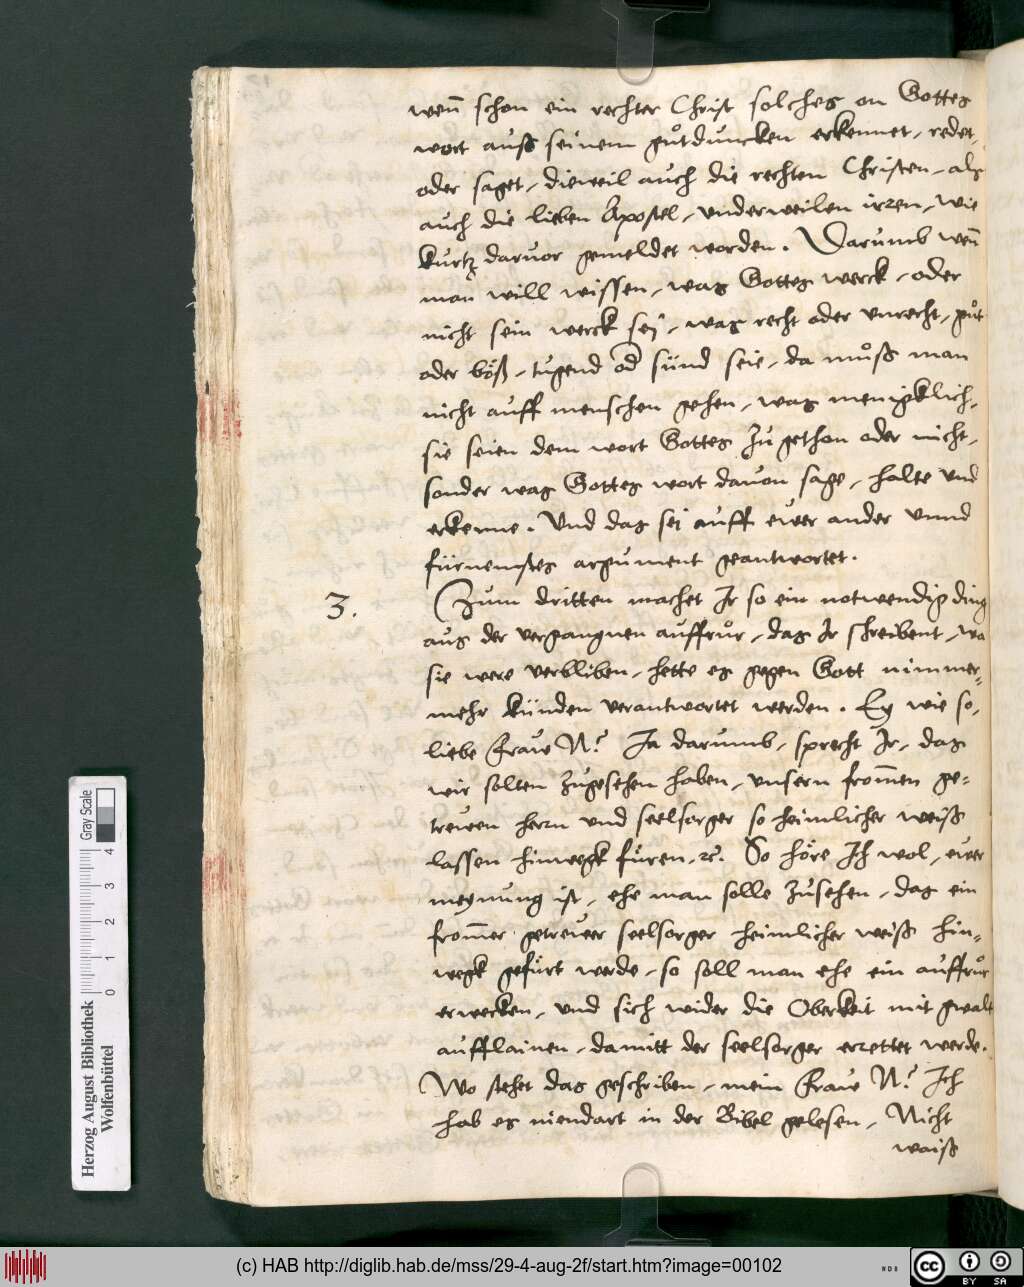 wenn̄ schon ein rechter Christ solches on Gottes
wort auß seinem gůtduncken erkennet, redet,
oder saget, dieweil auch die rechten Christen, als
auch die lieben Apostel, underweilen irren, wie
kurtz daruor gemeldet worden. Darumb wen̄
man will wissen, was Gottes werck, oder
nicht sein werck sej, was recht oder unrecht, gůt
oder böß, tugend od sünd seie, da můß man
nicht auff menschen gehen, was menigklich,
sie seien dem wort Gottes zůgethon oder nicht,
sonder was Gottes wort dauon sage, halte und
erkenne. Und das sei auff ewer ander unnd
fürnemstes argument geantwortet.
3. Zum dritten machet Ir so ein notwendig ding
aus der vergangnen auffrůr, das Ir schreibent, wo
sie were verbliben, hette es gegen Gott nimmer=
mehr künden verantwortet werden. Ey wie so,
liebe Frawe N? Ja darumb, sprecht Ir, das
wir solten zůgesehen haben, unsern from̄en ge=
trewen herrn und seelsorger so heimlicher weiß
lassen hinwegk füren, ꝛc. So höre Ich wol, ewer
meynung ist, ehe man solle zůsehen, das ein
from̄er getrewer seelsorger heimlicher weiß hin=
wegk gefürt werde, so soll man ehe ein auffrůr
erwecken, und sich wider die Oberkeit mit gwalt
aufflainen, damitt der seelsorger errettet werde.
Wo stehet das geschriben, mein Frawe N? Ich
hab es niendart in der Bibel gelesen, Nicht
waiß
Gray Scale
4
3
2
1
0
Herzog August Bibliothek
Wolfenbüttel
(c) HAB http://diglib.hab.de/mss/29-4-aug-2f/start.htm?image=00102
WDB
cc
BY SA